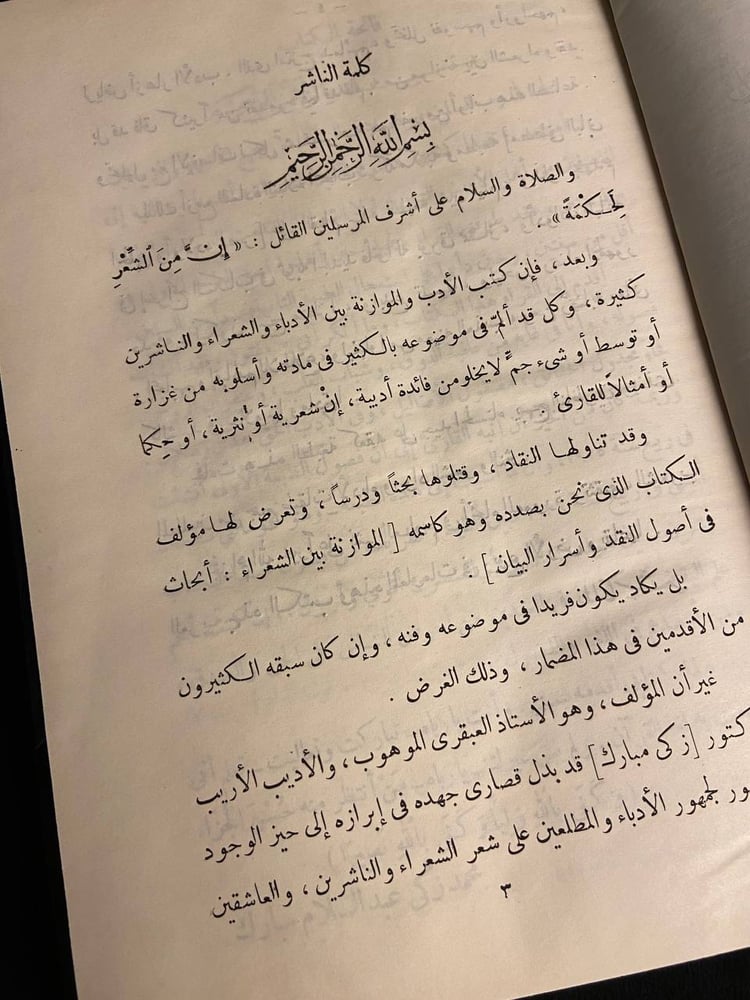 كلمة الناشر
بِسْمِ اللهِ الرَّحْمٰنِ الرَّحِيمِ
والصلاة والسلام على أشرف المرسلين القائل : « إِنَّ مِنَ الشِّعْرِ
لَحِكْمَةً » .
وبعد ، فإن كتب الأدب والموازنة بين الأدباء والشعراء والناشرين
كثيرة ، وكل قد ألمّ فى موضوعه بالكثير فى مادته وأسلوبه من غزارة
أو توسط أو شىء جمٍّ لايخلو من فائدة أدبية ، إنْ شعرية أو نثرية ، أو حِكما
أو أمثالاً للقارئ .
وقد تناولها النقاد ، وقتلوها بحثاً ودرساً ، وتعرض لها مؤلف
الكتاب الذى نحن بصدده وهو كاسمه [ الموازنة بين الشعراء : أبحاث
فى أصول النقد وأسرار البيان ] .
بل يكاد يكون فريدا فى موضوعه وفنه ، وإن كان سبقه الكثيرون
من الأقدمين فى هذا المضمار ، وذلك الغرض .
غير أن المؤلف ، وهو الأستاذ العبقرى الموهوب ، والأديب الأريب
كتور [ زكى مبارك ] قد بذل قصارى جهده فى إبرازه إلى حيز الوجود
ور لجمهور الأدباء والمطلعين على شعر الشعراء والناشرين ، والعاشقين
٣